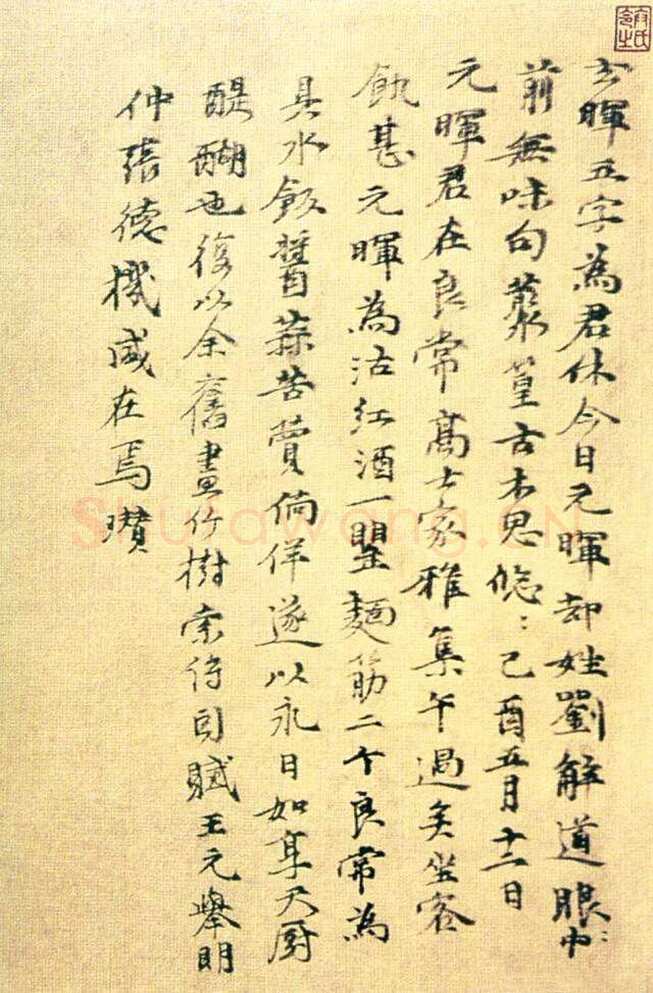 玄暉五字為君休今日元暉却姓劉解道眼:中
前無味句藂篁古木思悠:己酉五月十二日
元暉君在良常高士家雅集午過矣坐客
飢甚元暉為沽紅酒一罌麵筋二个良常為
具水飯醬蒜苦蕒徜徉遂以永日如享天厨
醍醐也復以余舊畫竹樹索詩因賦王元舉明
仲張德機咸在焉瓚
Shufawang.CN